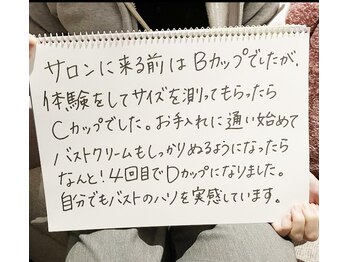 サロンに来る前はBカップでしたが、
体験をしてサイズを測ってもらったら
Cカップでした。お手入れに通い始めて
バストクリームもしっかりぬるようになったら
なんと!4回目でDカップになりました。
自分でもバストのハリを実感しています。